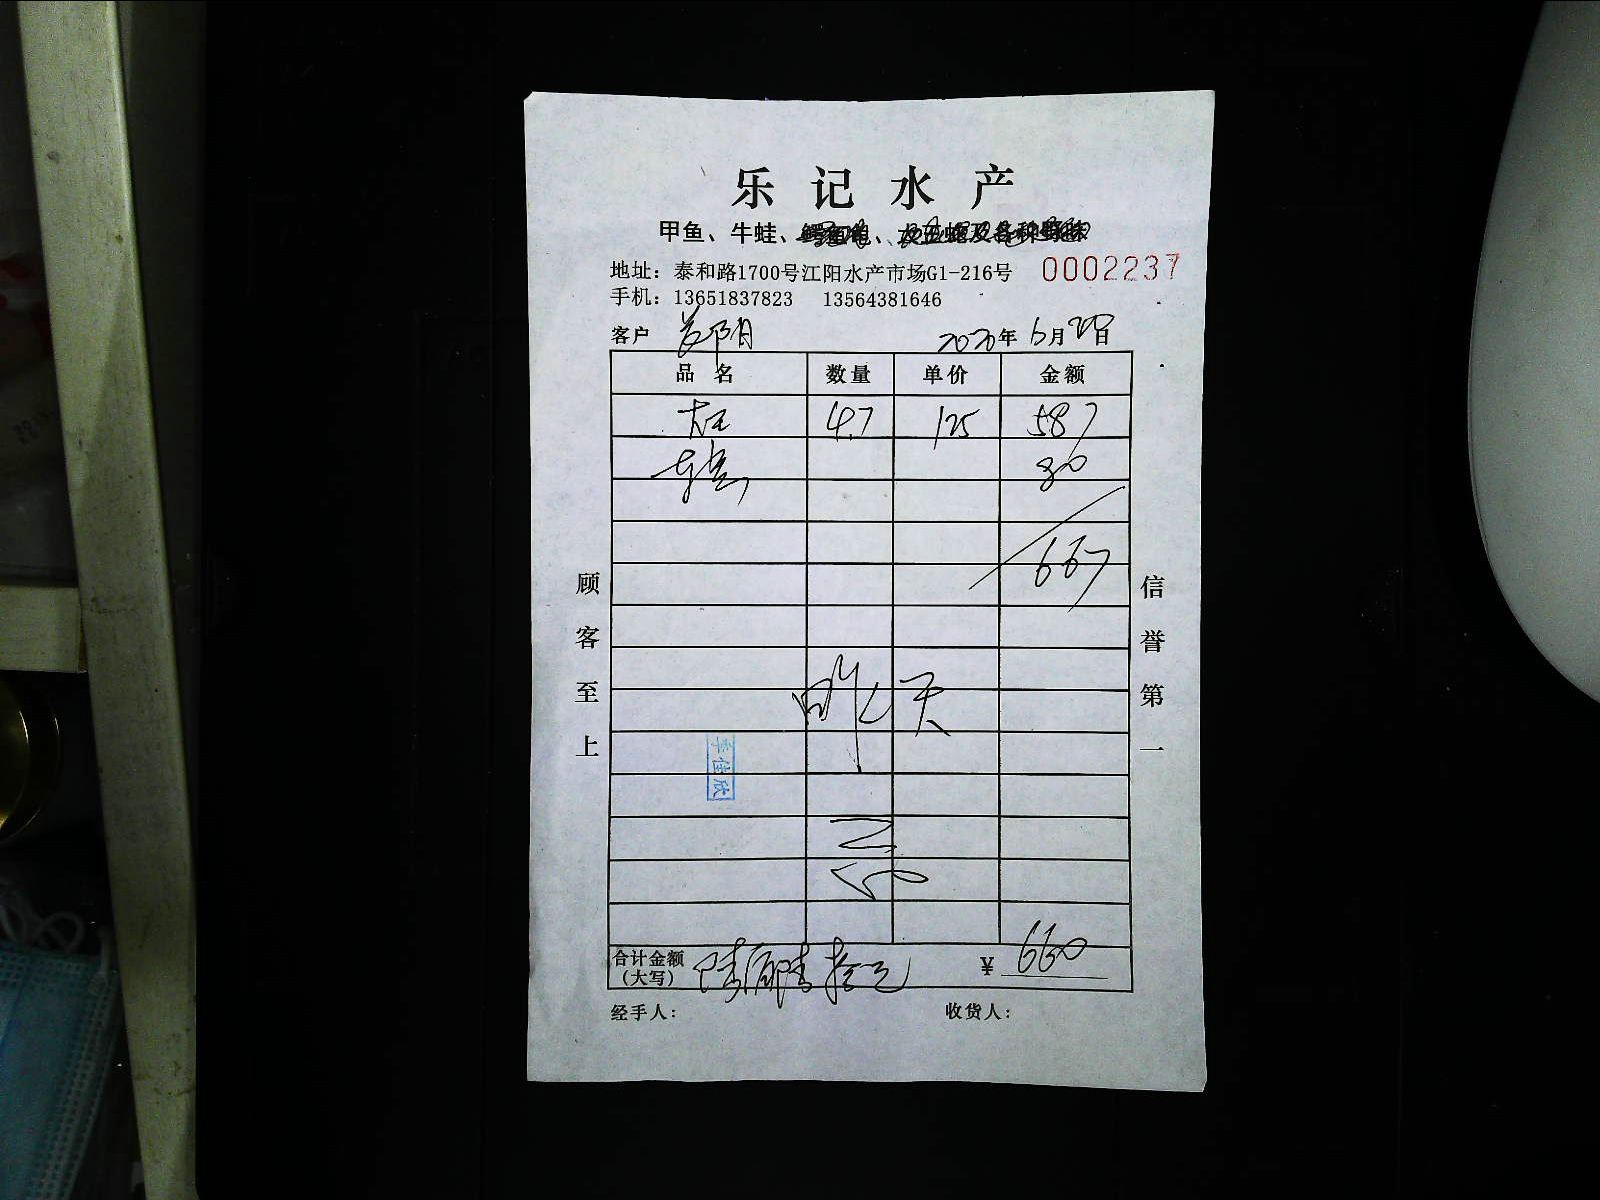 乐记水产
甲鱼、牛蛙、
地址：泰和路1700号江阳水产市场G1-216号 0002237
手机：13651837823 13564381646
客户 2020年6月20日
品名 数量 单价 金额
大王 4.7 125 587
80
667
顾客至上
信誉第一
昨天
李佳欣
合计金额（大写） 陆佰陆拾元 ¥ 660
经手人： 收货人：